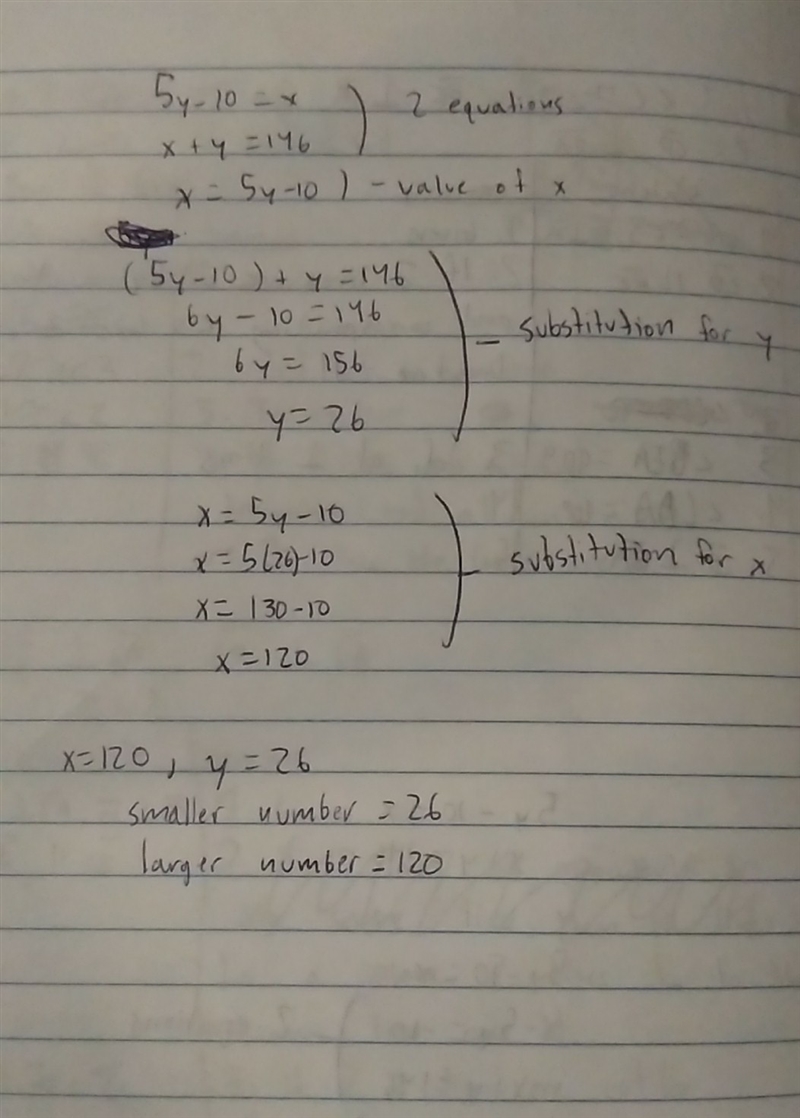 5y-10 = x ) 2 equations
x + y = 146
x = 5y-10 ) - value of x
(5y-10) + y = 146
6y - 10 = 146
6y = 156 - substitution for y
y = 26
x = 5y - 10
x = 5(26)-10 - substitution for x
x = 130-10
x = 120
x=120, y = 26
smaller number = 26
larger number = 120